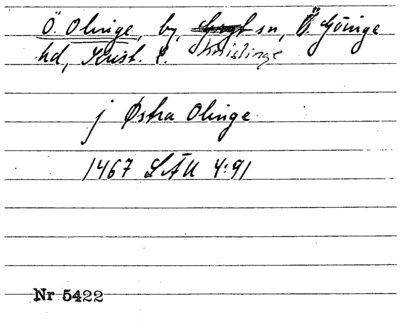 Ö. Olinge, by, sn, Ö. Göinge
hd, Krist. l. Knislinge
j Østra Olinge
1467 LÄU 4:91
Nr 5422